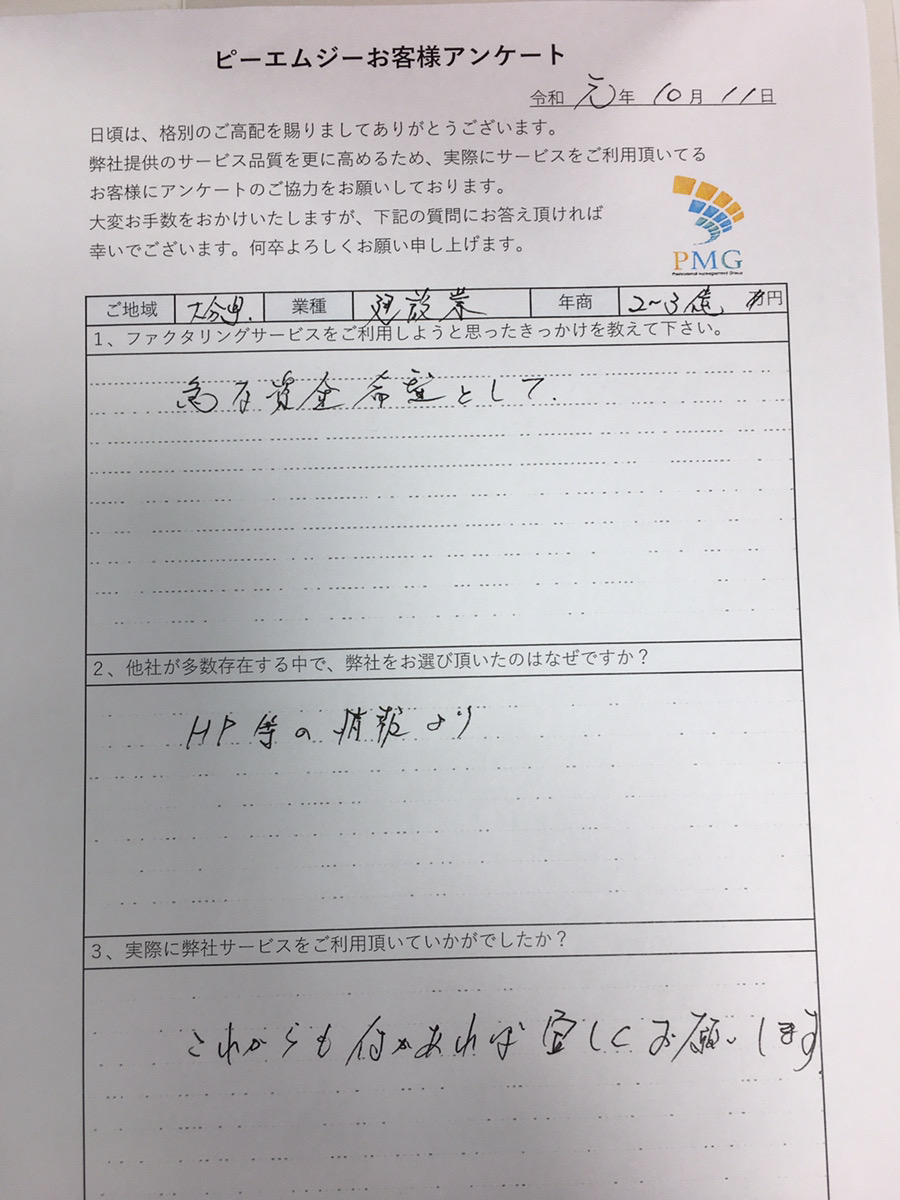 ピーエムジーお客様アンケート
令和 元 年 10 月 11 日
日頃は、格別のご高配を賜りましてありがとうございます。
弊社提供のサービス品質を更に高めるため、実際にサービスをご利用頂いてる
お客様にアンケートのご協力をお願いしております。
大変お手数をおかけいたしますが、下記の質問にお答え頂ければ
幸いでございます。何卒よろしくお願い申し上げます。
PMG
Professional Management Group
ご地域 大分県. 業種 建設業 年商 2~3億 万円
1、ファクタリングサービスをご利用しようと思ったきっかけを教えて下さい。
急な資金希望として.
2、他社が多数存在する中で、弊社をお選び頂いたのはなぜですか?
HP等の情報より
3、実際に弊社サービスをご利用頂いていかがでしたか?
これからも何かあれば宜しくお願いします.